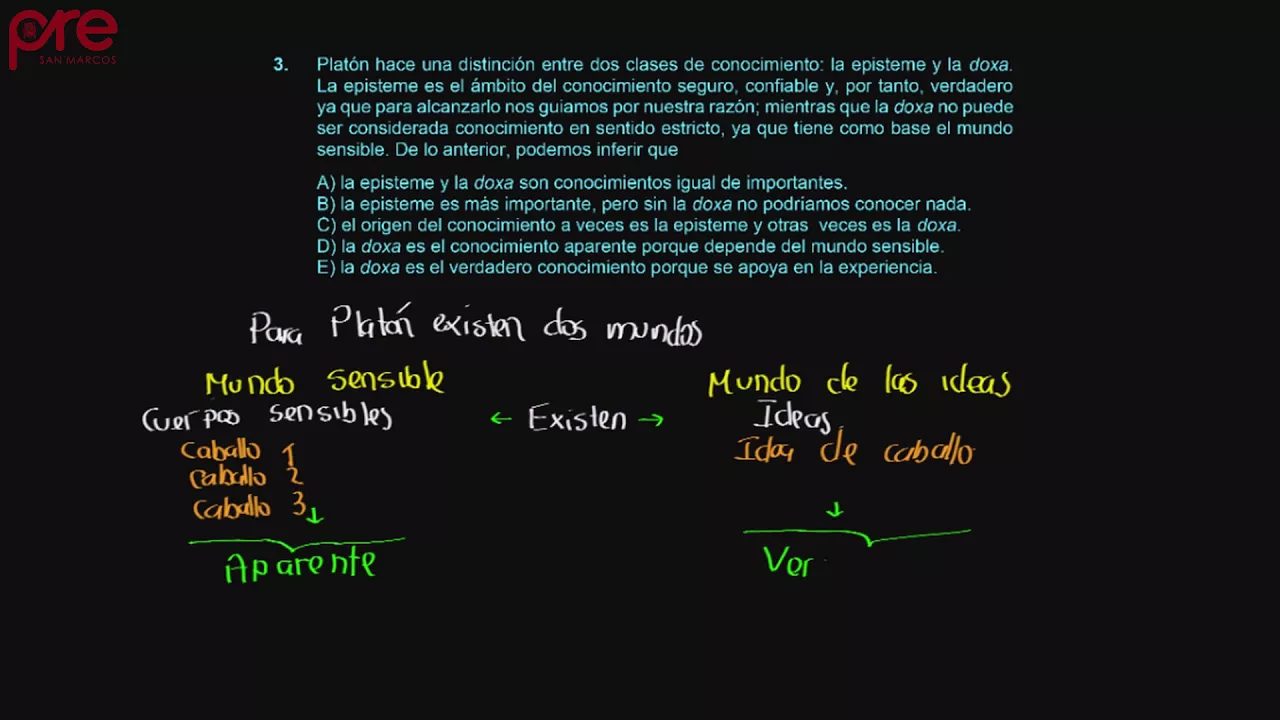 pre
SAN MARCOS
3. Platón hace una distinción entre dos clases de conocimiento: la episteme y la doxa.
La episteme es el ámbito del conocimiento seguro, confiable y, por tanto, verdadero
ya que para alcanzarlo nos guiamos por nuestra razón; mientras que la doxa no puede
ser considerada conocimiento en sentido estricto, ya que tiene como base el mundo
sensible. De lo anterior, podemos inferir que
A) la episteme y la doxa son conocimientos igual de importantes.
B) la episteme es más importante, pero sin la doxa no podríamos conocer nada.
C) el origen del conocimiento a veces es la episteme y otras veces es la doxa.
D) la doxa es el conocimiento aparente porque depende del mundo sensible.
E) la doxa es el verdadero conocimiento porque se apoya en la experiencia.
Para Platón existen dos mundos
Mundo sensible Mundo de las ideas
Cuerpos sensibles ← Existen → Ideas
Caballo 1 Idea de caballo
Caballo 2
Caballo 3
Aparente Ver